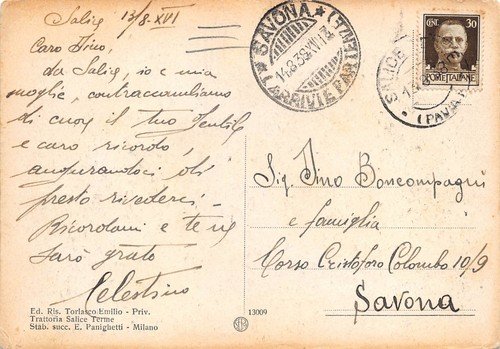 Salice 13/8-XVI
Caro Pino,
da Salice, io e mia
moglie, contraccambiamo
di cuore il tuo Gentile
e caro ricordo,
augurandoci di
presto rivederci -
Ricordami e te ne
sarò grato
Celestino
Ed. Ris. Torlasco Emilio - Priv.
Trattoria Salice Terme
Stab. succ. E. Panighetti - Milano
13009
SAVONA
ARRIVI E PARTENZE
CENT. 30
POSTE ITALIANE
SALICE
(PAVIA)
Sig. Pino Boncompagni
e famiglia
Corso Cristoforo Colombo 10/9
Savona